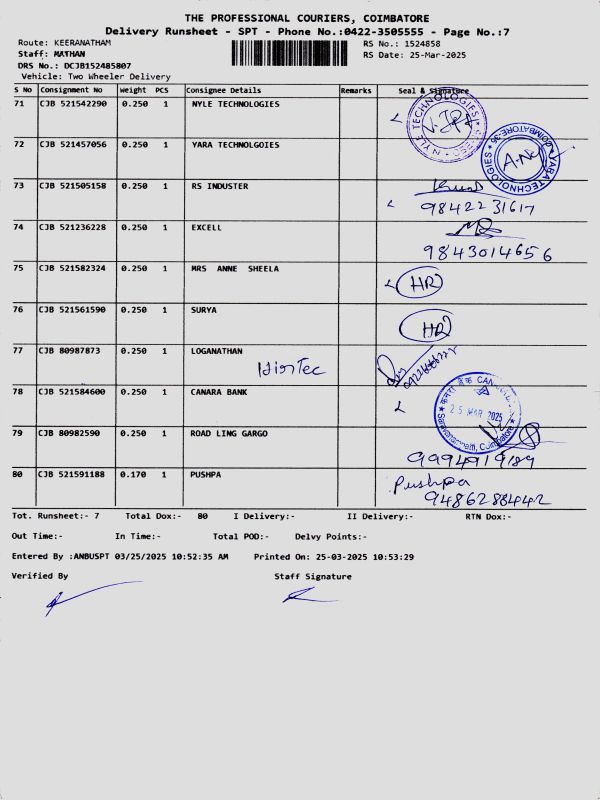 THE PROFESSIONAL COURIERS, COIMBATORE
Delivery Runsheet - SPT - Phone No.:0422-3505555 - Page No.:7
Route: KEERANATHAM
RS No.: 1524858
Staff: MATHAN
RS Date: 25-Mar-2025
DRS No.: DCJB152485807
Vehicle: Two Wheeler Delivery
S No Consignment No Weight PCS Consignee Details Remarks Seal & Signature
71 CJB 521542290 0.250 1 NYLE TECHNOLOGIES
NYLE TECHNOLOGIES
72 CJB 521457056 0.250 1 YARA TECHNOLGOIES
YARA TECHNOLOGIES COIMBATORE-35
73 CJB 521505158 0.250 1 RS INDUSTER
9842231617
74 CJB 521236228 0.250 1 EXCELL
9843014656
75 CJB 521582324 0.250 1 MRS ANNE SHEELA
HR
76 CJB 521561590 0.250 1 SURYA
HR
77 CJB 80987873 0.250 1 LOGANATHAN
78 CJB 521584600 0.250 1 CANARA BANK
25 MAR 2025
79 CJB 80982590 0.250 1 ROAD LING GARGO
9994919189
80 CJB 521591188 0.170 1 PUSHPA
Pushpa
9486288442
Tot. Runsheet:- 7 Total Dox:- 80 I Delivery:- II Delivery:- RTN Dox:-
Out Time:- In Time:- Total POD:- Delvy Points:-
Entered By :ANBUSPT 03/25/2025 10:52:35 AM Printed On: 25-03-2025 10:53:29
Verified By Staff Signature